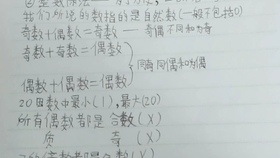 我们所说的数指的是自然数(一般不包括0)
奇数+偶数=奇数 — 奇偶不同和为奇
奇数+奇数=偶数
同奇同偶和为偶
偶数+偶数=偶数
20因数中最小(1),最大(20)
所有偶数都是合数(X)
质 奇 (X)